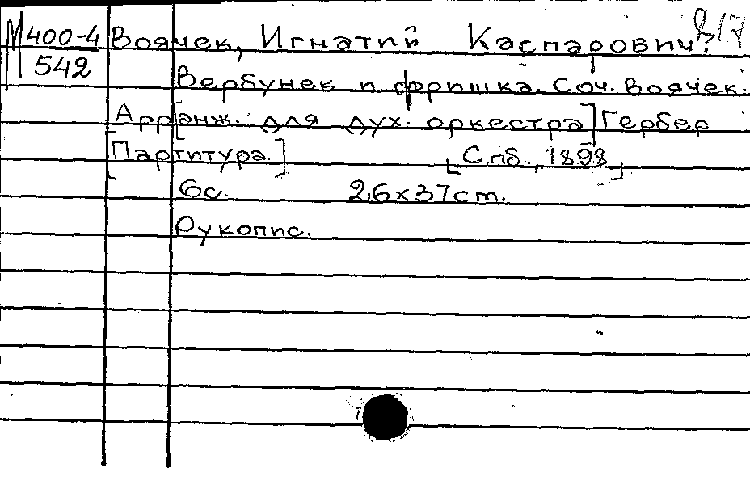 М 400-4 Воячек, Игнатий Каспарович. 217
542 Вербунек и фришка. Соч. Воячек.
Арранж. для дух. оркестра] Гербер
[Партитура.] [Спб., 1898]
6с. 26х37cm.
Рукопис.